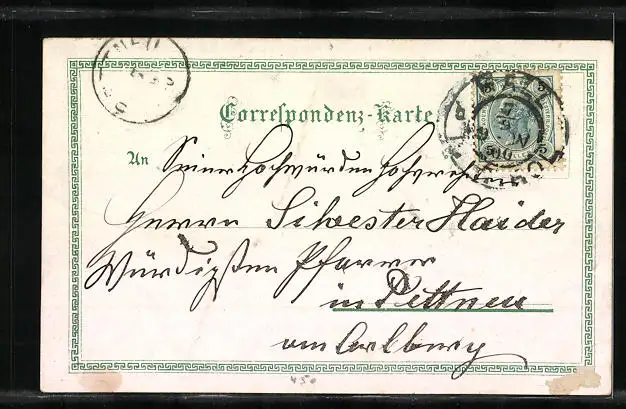 Correspondenz-Karte
An Seiner Hochwürden Hochverehrten
Herrn Silvester Haider
Würdigsten Pfarrer
in Pettneu
am Arlberg